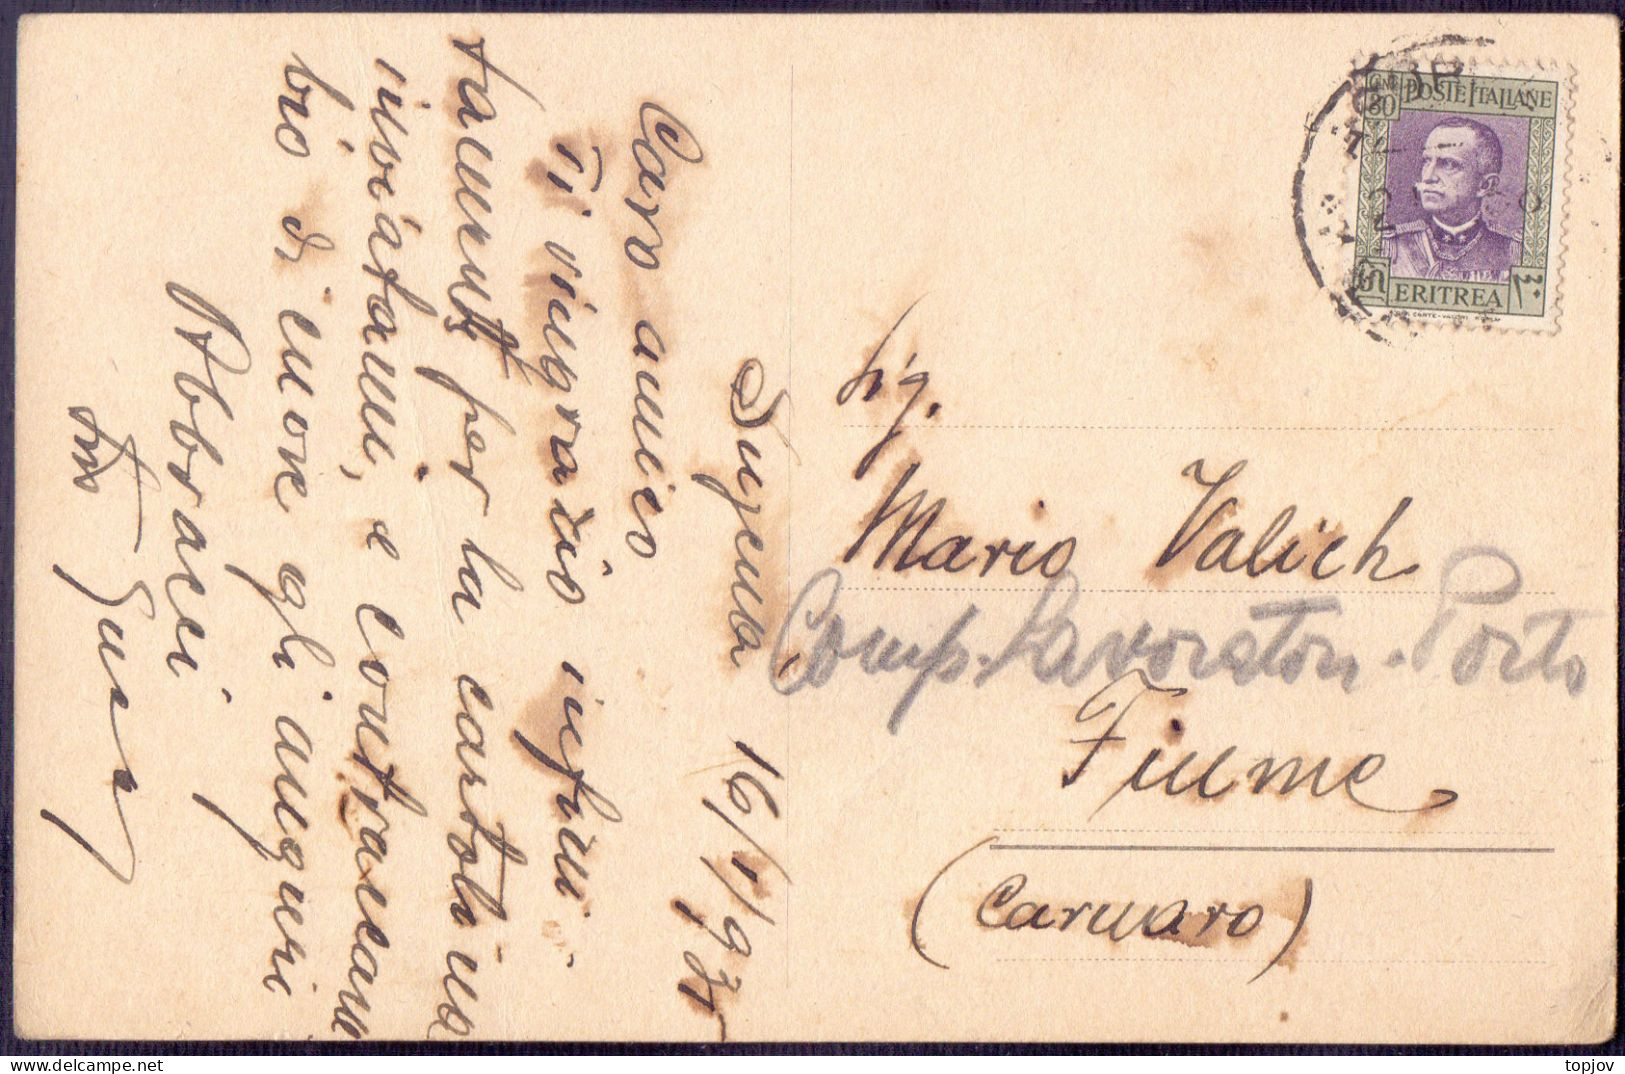 Dugena 16/1/937
Caro amico
Ti ringrazio infini
tamente per la cartolina
inviatami, e contraccam
bio di cuore gli auguri
Abbracci
tuo
Sig.
Mario Valich
Comp. Lavoratori Porto
Fiume
(Carnaro)
CENT 30
POSTE ITALIANE
ERITREA
topjov